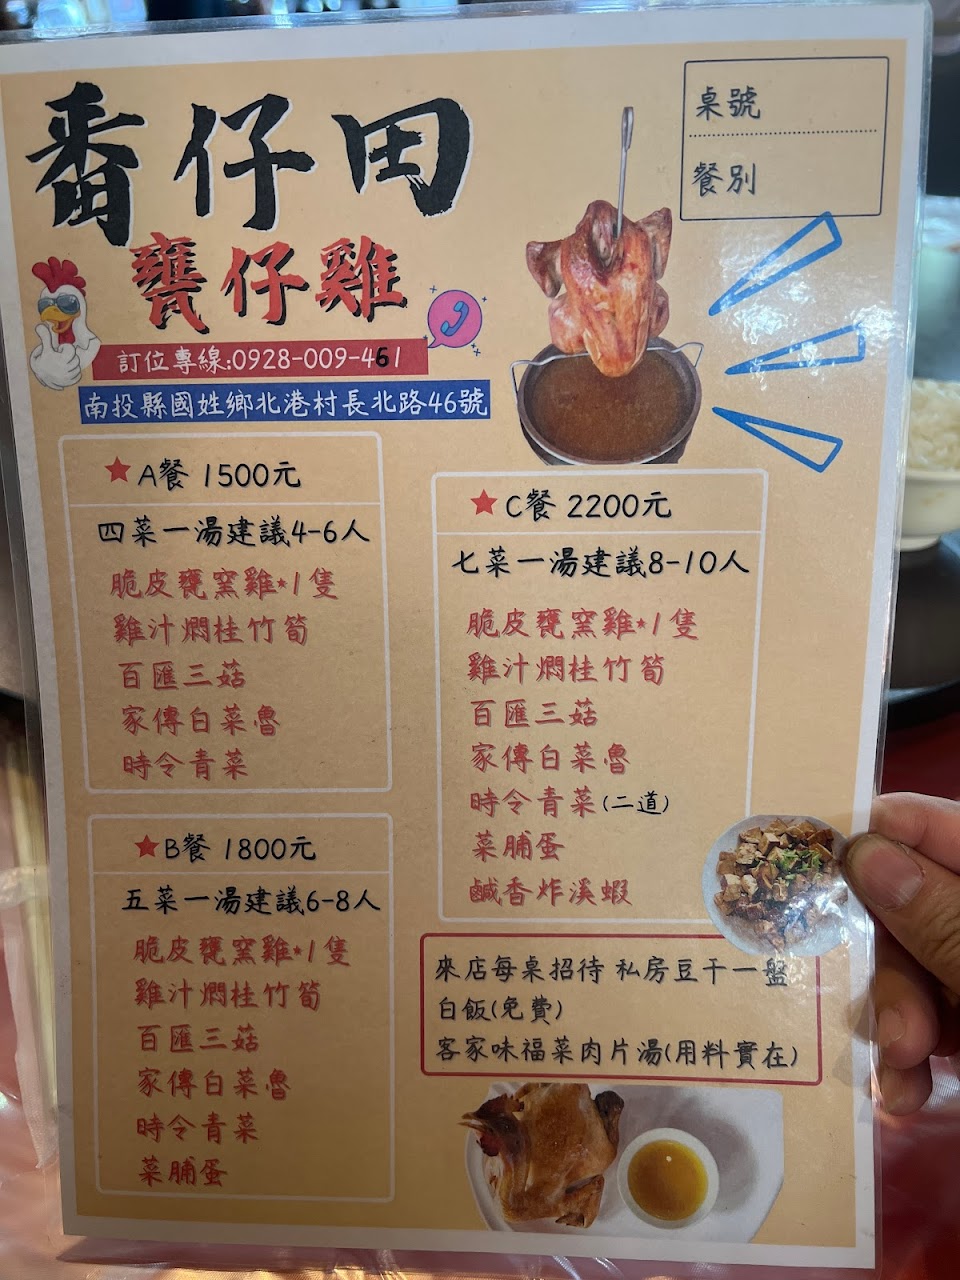 番仔田
甕仔雞
訂位專線:0928-009-461
南投縣國姓鄉北港村長北路46號
桌號
餐別
★A餐 1500元
四菜一湯建議4-6人
脆皮甕窯雞*1隻
雞汁燜桂竹筍
百匯三菇
家傳白菜魯
時令青菜
★B餐 1800元
五菜一湯建議6-8人
脆皮甕窯雞*1隻
雞汁燜桂竹筍
百匯三菇
家傳白菜魯
時令青菜
菜脯蛋
★C餐 2200元
七菜一湯建議8-10人
脆皮甕窯雞*1隻
雞汁燜桂竹筍
百匯三菇
家傳白菜魯
時令青菜(二道)
菜脯蛋
鹹香炸溪蝦
來店每桌招待 私房豆干一盤
白飯(免費)
客家味福菜肉片湯(用料實在)